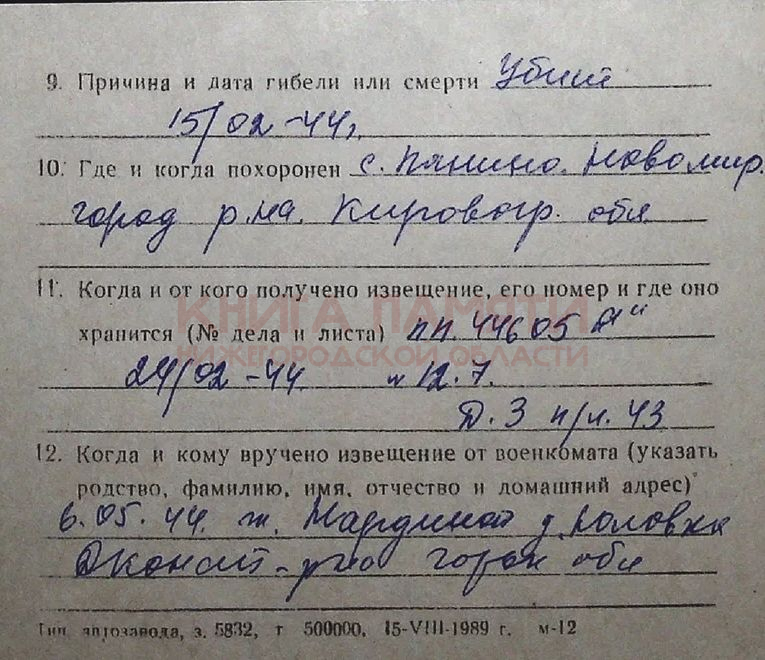 9. Причина и дата гибели или смерти Убит
15/02-44г.
10. Где и когда похоронен с. Панино. Новомир.
город р.на. Кировогр. обл
11. Когда и от кого получено извещение, его номер и где оно
КНИГА ПАМЯТИ
хранится (№ дела и листа) пп. 44605 "А"
НИЖЕГОРОДСКОЙ ОБЛАСТИ
24/02-44 № 12.7.
Д. 3 п/л. 43
12. Когда и кому вручено извещение от военкомата (указать
родство, фамилию, имя, отчество и домашний адрес)
6.05.44. ж. д.
р-на обл
Тип. автозавода, з. 5832, т 500000, 15-VIII-1989 г. м-12